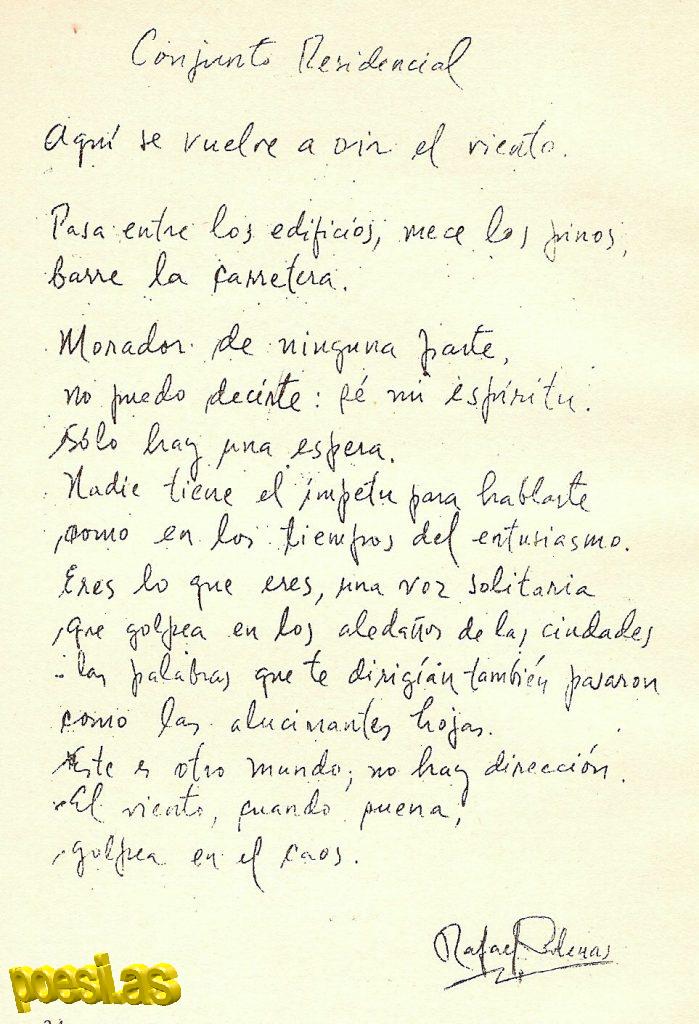 Conjunto Residencial
Aquí se vuelve a oir el viento.
Pasa entre los edificios, mece los pinos,
barre la carretera.
Morador de ninguna parte,
no puedo decirte: sé mi espíritu.
Sólo hay una espera.
Nadie tiene el ímpetu para hablarte
como en los tiempos del entusiasmo.
Eres lo que eres, una voz solitaria
que golpea en los aledaños de las ciudades
las palabras que te dirigían también pasaron
como las alucinantes hojas.
Este es otro mundo; no hay dirección.
El viento, cuando suena,
golpea en el caos.
Rafael Cadenas
poesi.as